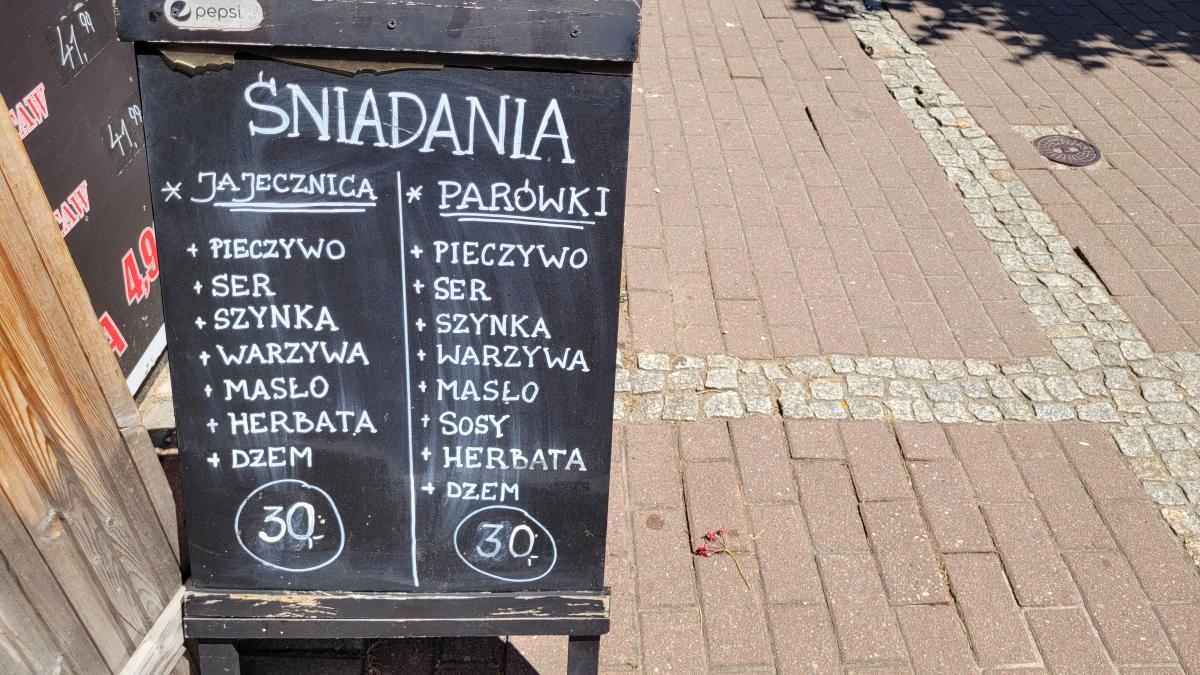 pepsi
41,99
41,99
4,9
ŚNIADANIA
* JAJECZNICA
+ PIECZYWO
+ SER
+ SZYNKA
+ WARZYWA
+ MASŁO
+ HERBATA
+ DŻEM
30,-
* PARÓWKI
+ PIECZYWO
+ SER
+ SZYNKA
+ WARZYWA
+ MASŁO
+ SOSY
+ HERBATA
+ DŻEM
30,-